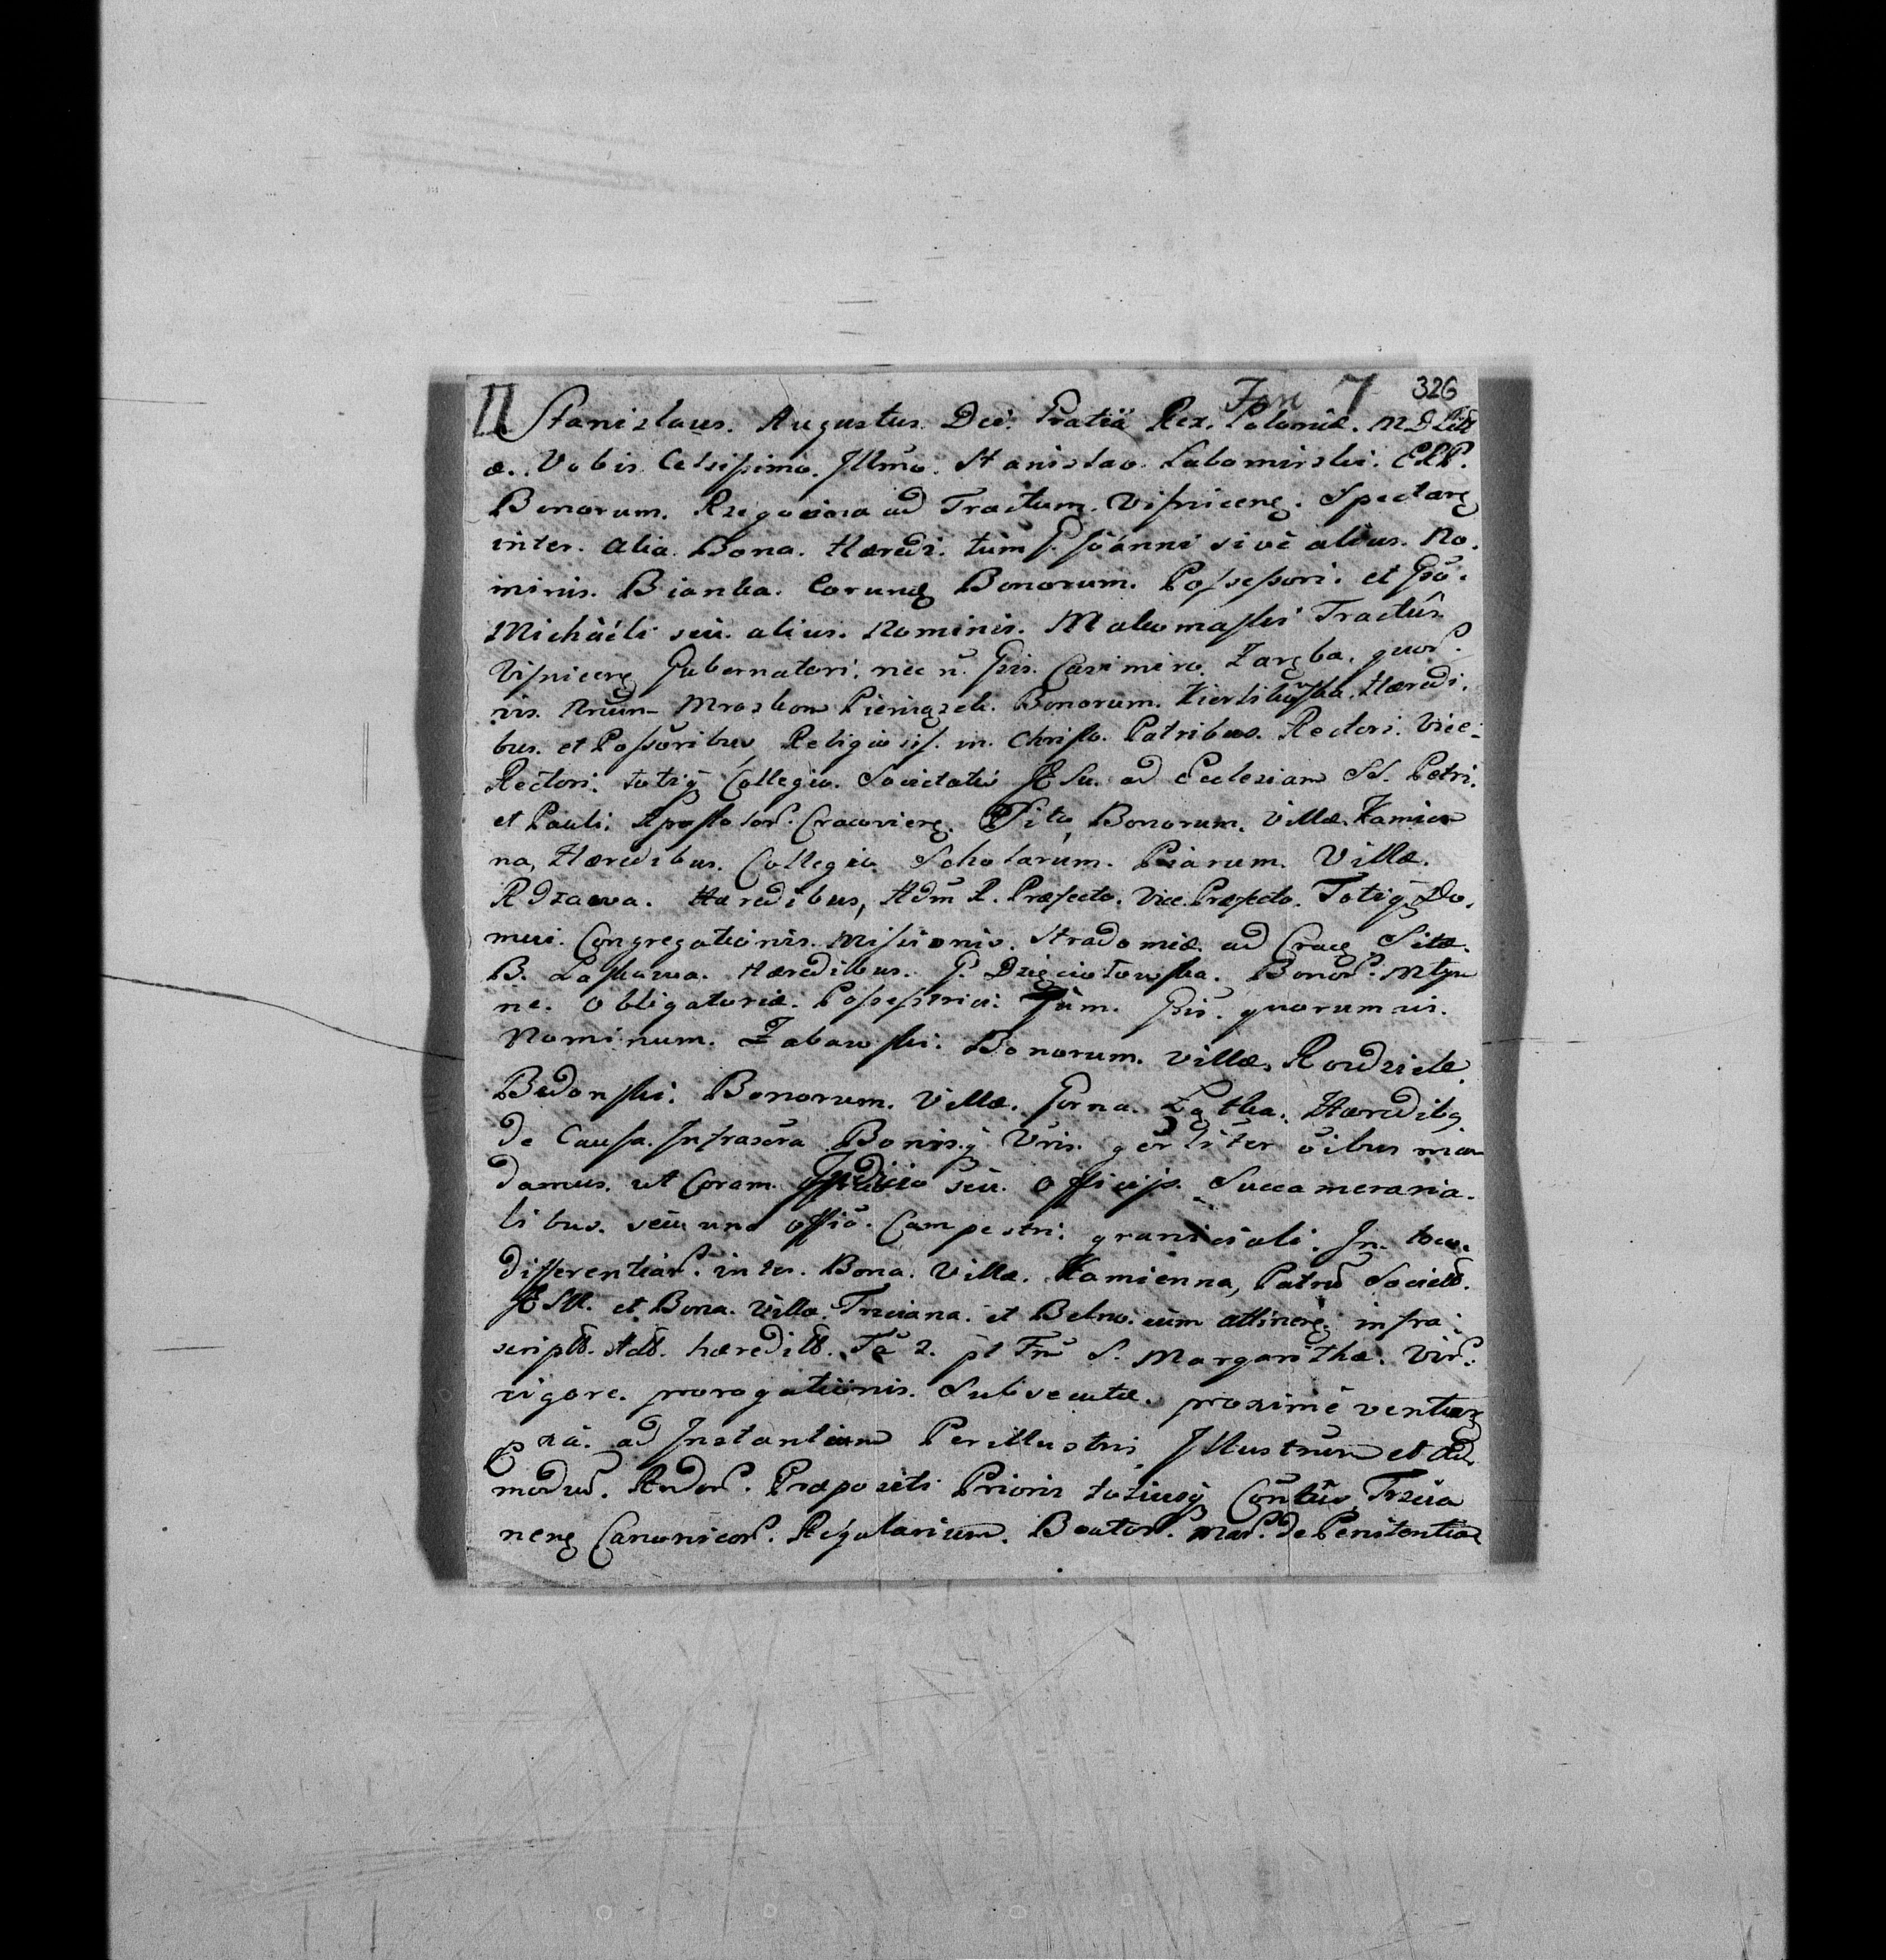 II Fasc 7 326
Stanislaus. Augustus. Dei. Gratiä Rex. Poloniæ. M D Litt
æ. Vobis. Celsissimo. Jllmo. Stanislao. Lubomirski.
Bonorum. Rzegocina ad Tractum. Visnicens. Spectans
inter. alia. Bona. Hæredi. tum G. Joanni sive alius. No.
minis. Bianka. Eorundq Bonorum. Possessori. et Gso.
Michaeli seu. alius. Nominis. Malcomaski Tractus
Visnicens Gubernatori. nec n. Gsis. Casimiro Zaręba. quor.
vis. Nnum Mrozkow Pieniązek. Bonorum. Hæredi.
bus. et Possoribus Religiosiss. in. Christo. Patribus. Rectori. Vice-
Rectori. totiq Collegio. Societatis JESu. ad Ecclesiam SS. Petri.
et Pauli. Apostolor. Cracoviens. Sito Bonorum. Villæ. Kamien
na, Hæredibus. Collegio Scholarum. Piarum. Villæ.
Rdzawa. Hæredibus, Adm R. Præfecto. Vice. Præfecto. Totiq Do.
mui. Congregationis. Missionis. Stradomiæ. ad Crac Sitæ.
B. Laskawa. Hæredibus. G. Dzięciołowska. Bonor. Młyn
ne. Obligatoriæ. Possessrici. Tum. Gsis. quorumvis.
Nominum. Zabawski. Bonorum. villæ, Rozdziele
Bedonski. Bonorum. Villæ. Gorna. Łątka. Hæredibq
de Causa. Infrascra Bonisq Vris. gerliter oibus man
damus. ut Coram. Judicio seu. Officijs. Succameraria.
libus. seu uno Offio. Campestri. graniciali. In. loco.
differentiar. inter. Bona. Villæ. Kamienna, Patru Societt.
JESU. et Bona. Villa Trzciana. et Belno. cum attinens infra
scriptt. Att. hæreditt. Fa 2. pt Fm S. Margarithæ. Vir.
vigore. prorogationis. Subsecutæ. proxime ventura
ad Instantiam Perillustris Illustrium et Ad.
modu. Rndor. Præpositi Prioris totiusq Contus Trzcia
nens Canonicor. Regularium. Beator. Mar. de Penitentia